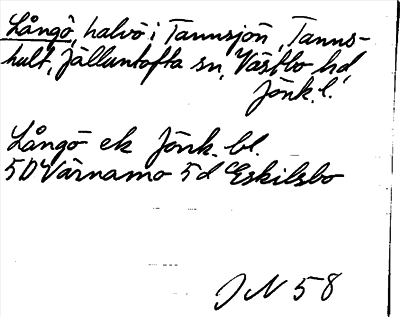 Långö, halvö i Tannsjön, Tanns-
hult, Jälluntofta sn, Västbo hd,
Jönk. l.
Långö ek Jönk. bl.
5D Värnamo 5d Eskilsbo
JN 58